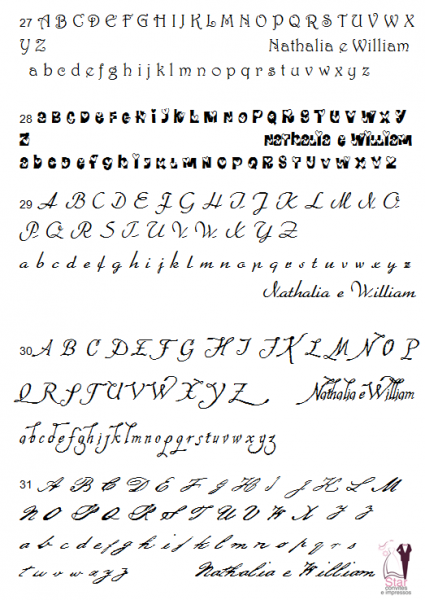 27 A B C D E F G H I J K L M N O P Q R S T U V W X
Y Z Nathalia e William
a b c d e f g h i j k l m n o p q r s t u v w x y z
28 a B C D e F G H i J K L M N O P Q R S T U V W X Y
Z Nathalia e William
a b c D e f g h i j k L M N O P Q R S T U V W X Y Z
29 A B C D E F G H I J K L M N O
P Q R S T U V W X Y Z
a b c d e f g h i j k l m n o p q r s t u v w x y z
Nathalia e William
30 A B C D E F G H I J K L M N O P
Q R S T U V W X Y Z Nathalia e William
a b c d e f g h i j k l m n o p q r s t u v w x y z
31 A B C D E F G H I J K L M
N O P Q R S T U V W X Y Z
a b c d e f g h i j k l m n o p q r s
t u v w x y z Nathalia e William
Star
convites
e impressos